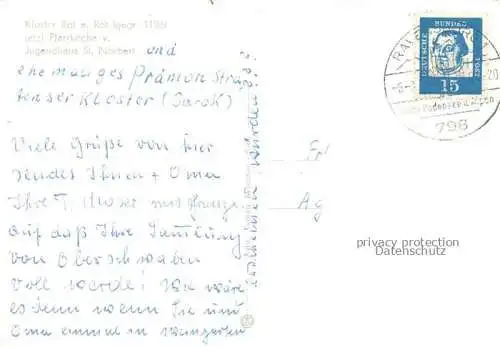 Kloster Rot a. Rot (gegr. 1126)
jetzt Pfarrkirche u.
Jugendhaus St. Norbert und
ehemaliges Prämon Strat
tenser Kloster (Barok)
Viele Grüße von hier
sendet Ihnen + Oma
Ihre T. Moser mit
auf daß Ihre Samlung
von Oberschwaben
voll werde! Wie wäre
es denn wenn Sie und
Oma einmal in Weingarten
würden
Fr
Ag
DEUTSCHE BUNDESPOST
15
RAVENSBURG
-20
798
privacy protection
Datenschutz